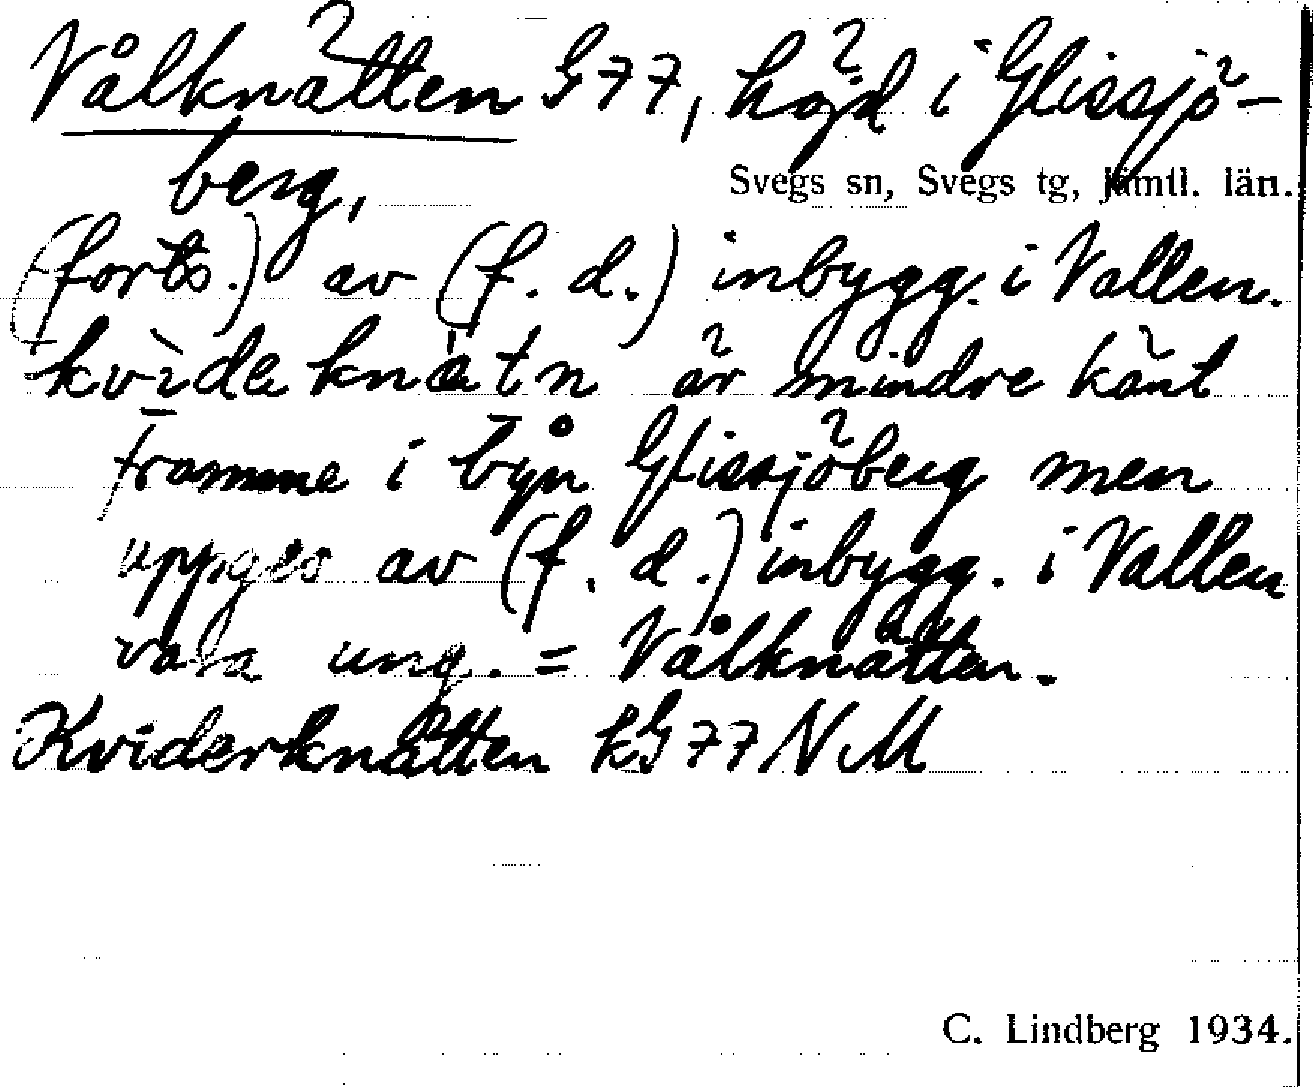 Vålknätten G77, höjd i Glissjö-
berg,
Svegs sn, Svegs tg, Jämtl. län.
(forts.) av (f. d.) inbygg. i Vallen.
kvìdeknä̀tn är mindre känt
framme i byn Glissjöberg men
uppges av (f. d.) inbygg. i Vallen
vara ung. = Vålknätten.
Kviderknätten kG77NM
C. Lindberg 1934.